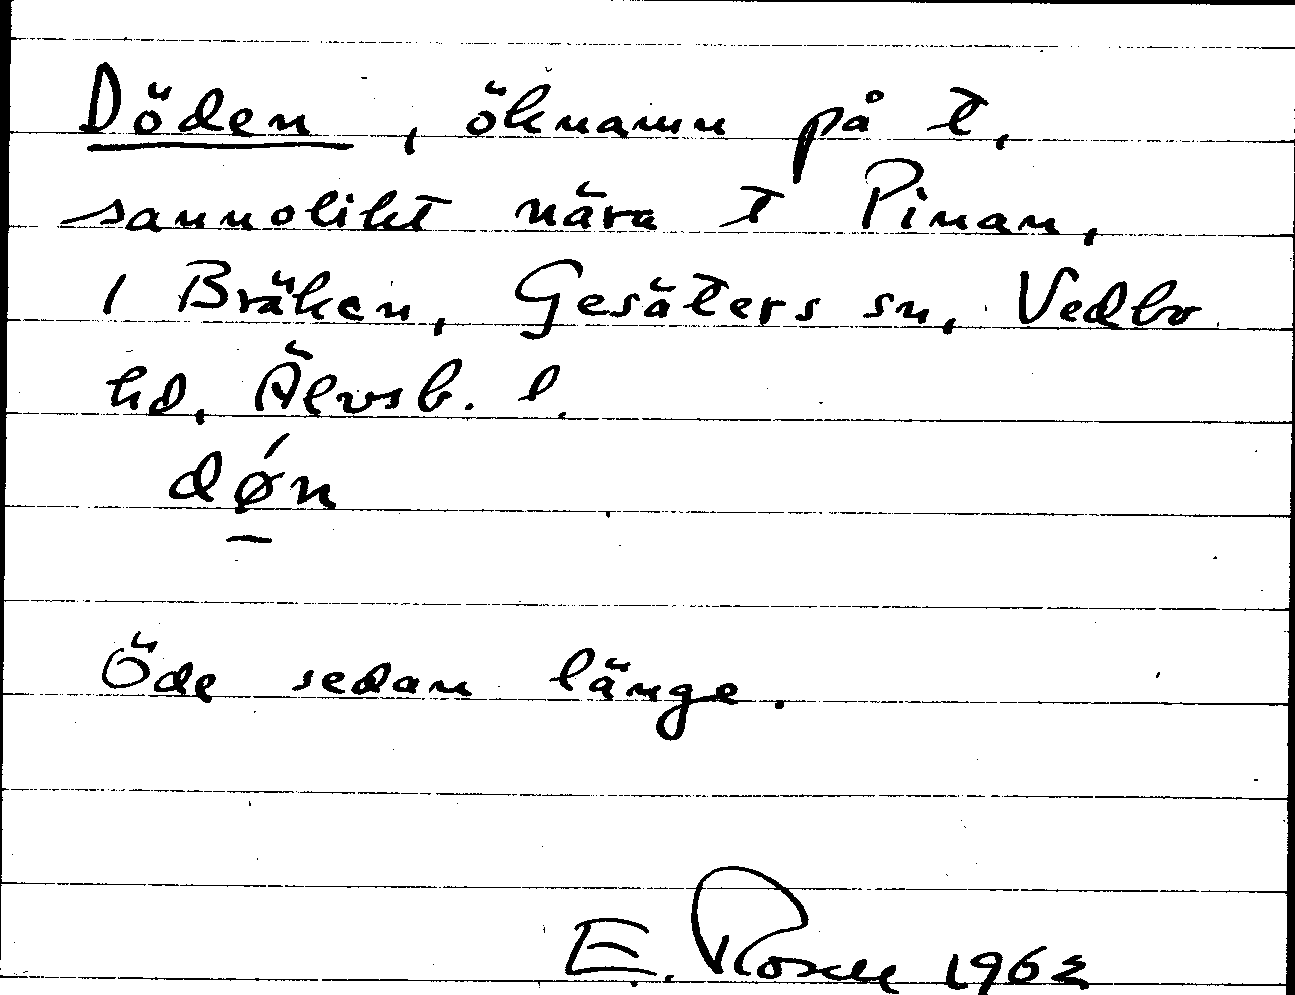 Döden, öknamn på t,
sannolikt nära t Pinan,
i Bräken, Gesäters sn, Vedbo
hd, Älvsb. l.
dǿn
Öde sedan länge.
E. Rosell 1962